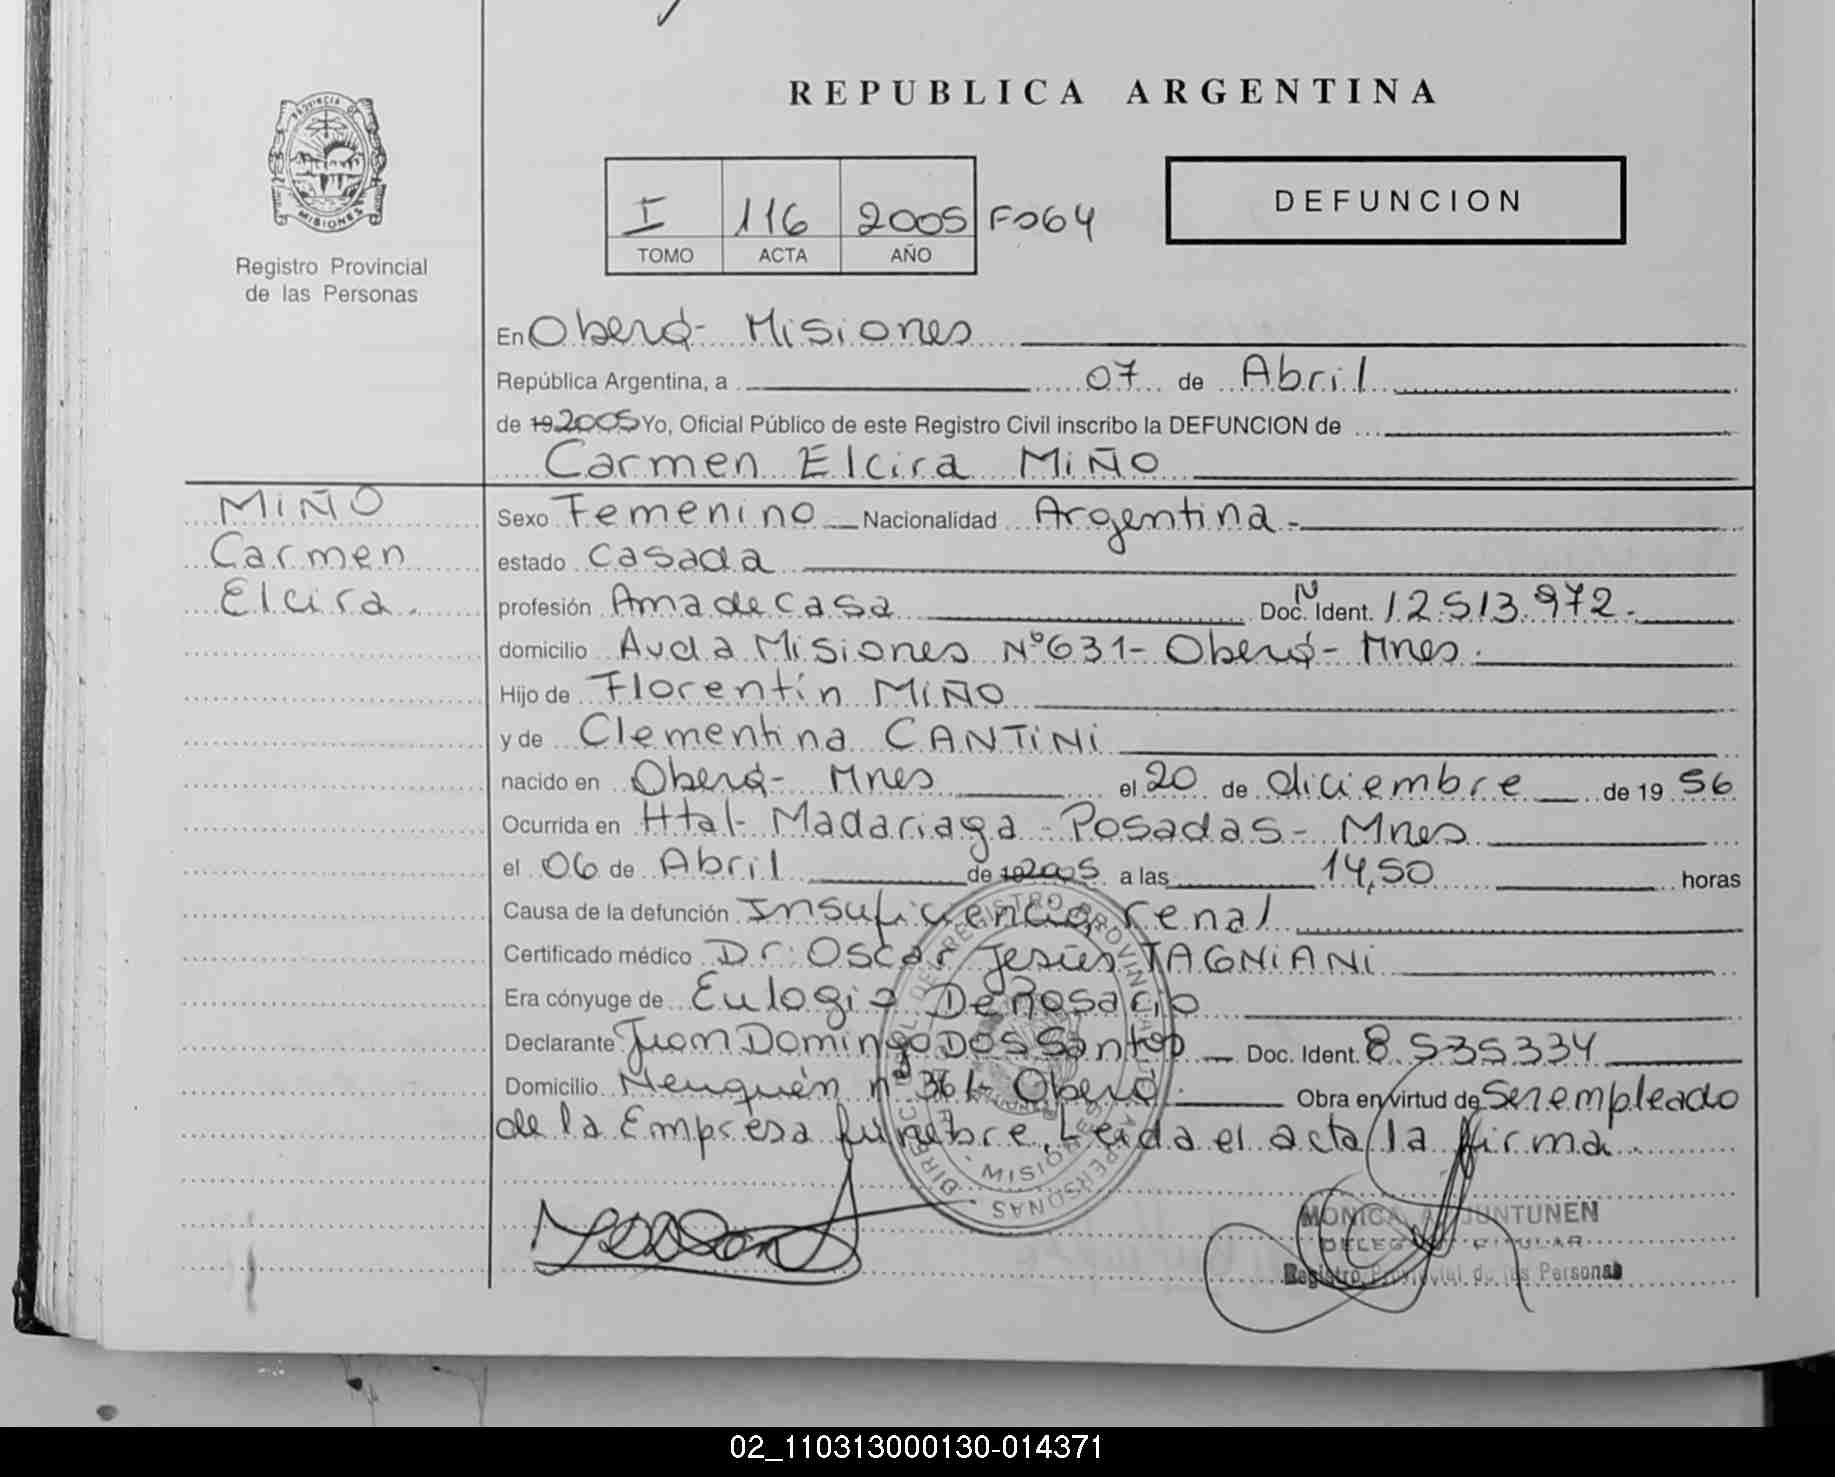 REPUBLICA ARGENTINA
PROVINCIA DE
MISIONES
Registro Provincial
de las Personas
I 116 2005 Fº064
TOMO ACTA AÑO
DEFUNCION
En Oberá- Misiones
República Argentina, a 07 de Abril
de 19 2005 Yo, Oficial Público de este Registro Civil inscribo la DEFUNCION de
Carmen Elcira MIÑO
MIÑO
Carmen
Elcira.
Sexo Femenino Nacionalidad Argentina-
estado casada
profesión Ama de casa Doc. N Ident. 12.513.972.
domicilio Avda Misiones Nº631- Oberá- Mnes.
Hijo de Florentín MIÑO
y de Clementina CANTINI
nacido en Oberá- Mnes el 20 de diciembre de 19 56
Ocurrida en Htal- Madariaga- Posadas- Mnes
el 06 de Abril de 19 2005 a las 14,50 horas
Causa de la defunción Insuficiencia renal
Certificado médico Dr: Oscar Jesús TAGNIANI
Era cónyuge de Eulogio De Rosario
Declarante Juan Domingo DOS Santos Doc. Ident. 8.535334
Domicilio Neuquén nº 361- Oberá. Obra en virtud de Ser empleado
de la Empresa funebre, Leida el acta la firma.
MISIONES
MONICA A. JUNTUNEN
DELEGADA TITULAR
Registro Provincial de las Personas
02_110313000130-014371